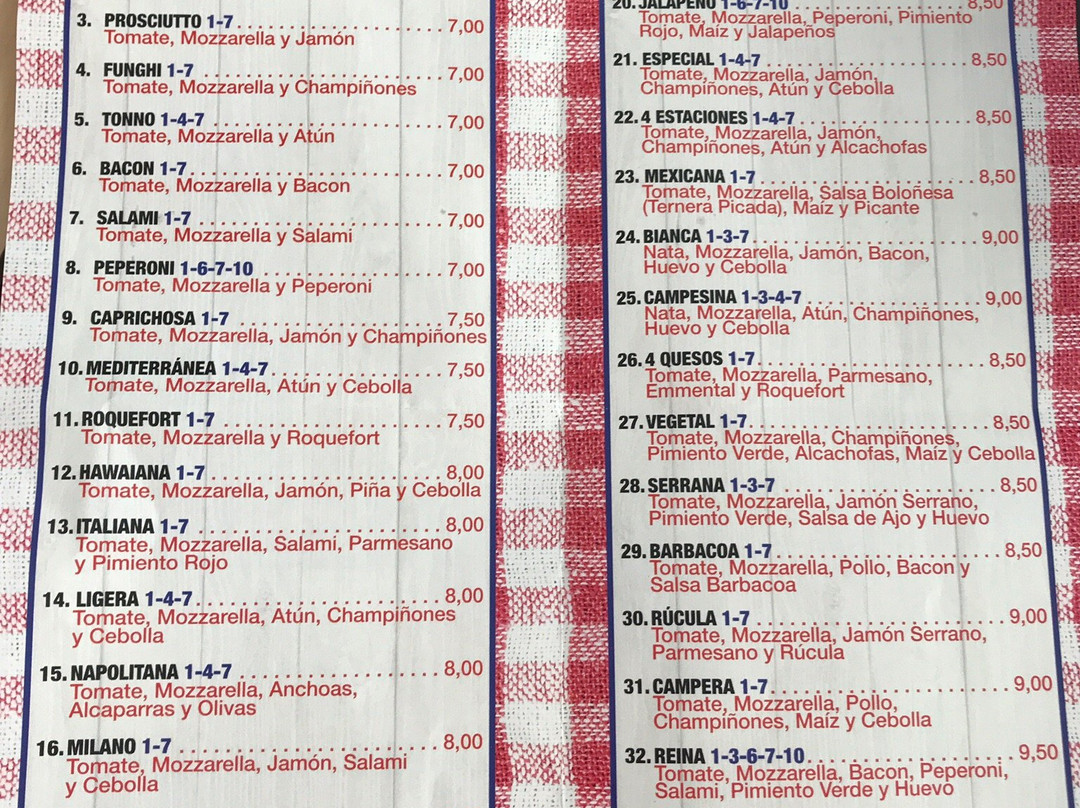 3. PROSCIUTTO 1-7 7,00
Tomate, Mozzarella y Jamón
4. FUNGHI 1-7 7,00
Tomate, Mozzarella y Champiñones
5. TONNO 1-4-7 7,00
Tomate, Mozzarella y Atún
6. BACON 1-7 7,00
Tomate, Mozzarella y Bacon
7. SALAMI 1-7 7,00
Tomate, Mozzarella y Salami
8. PEPERONI 1-6-7-10 7,00
Tomate, Mozzarella y Peperoni
9. CAPRICHOSA 1-7 7,50
Tomate, Mozzarella, Jamón y Champiñones
10. MEDITERRÁNEA 1-4-7 7,50
Tomate, Mozzarella, Atún y Cebolla
11. ROQUEFORT 1-7 7,50
Tomate, Mozzarella y Roquefort
12. HAWAIANA 1-7 8,00
Tomate, Mozzarella, Jamón, Piña y Cebolla
13. ITALIANA 1-7 8,00
Tomate, Mozzarella, Salami, Parmesano
y Pimiento Rojo
14. LIGERA 1-4-7 8,00
Tomate, Mozzarella, Atún, Champiñones
y Cebolla
15. NAPOLITANA 1-4-7 8,00
Tomate, Mozzarella, Anchoas,
Alcaparras y Olivas
16. MILANO 1-7 8,00
Tomate, Mozzarella, Jamón, Salami
y Cebolla
20. JALAPEÑO 1-6-7-10 8,50
Tomate, Mozzarella, Peperoni, Pimiento
Rojo, Maíz y Jalapeños
21. ESPECIAL 1-4-7 8,50
Tomate, Mozzarella, Jamón,
Champiñones, Atún y Cebolla
22. 4 ESTACIONES 1-4-7 8,50
Tomate, Mozzarella, Jamón,
Champiñones, Atún y Alcachofas
23. MEXICANA 1-7 8,50
Tomate, Mozzarella, Salsa Boloñesa
(Ternera Picada), Maíz y Picante
24. BIANCA 1-3-7 9,00
Nata, Mozzarella, Jamón, Bacon,
Huevo y Cebolla
25. CAMPESINA 1-3-4-7 9,00
Nata, Mozzarella, Atún, Champiñones,
Huevo y Cebolla
26. 4 QUESOS 1-7 8,50
Tomate, Mozzarella, Parmesano,
Emmental y Roquefort
27. VEGETAL 1-7 8,50
Tomate, Mozzarella, Champiñones,
Pimiento Verde, Alcachofas, Maíz y Cebolla
28. SERRANA 1-3-7 8,50
Tomate, Mozzarella, Jamón Serrano,
Pimiento Verde, Salsa de Ajo y Huevo
29. BARBACOA 1-7 8,50
Tomate, Mozzarella, Pollo, Bacon y
Salsa Barbacoa
30. RÚCULA 1-7 9,00
Tomate, Mozzarella, Jamón Serrano,
Parmesano y Rúcula
31. CAMPERA 1-7 9,00
Tomate, Mozzarella, Pollo,
Champiñones, Maíz y Cebolla
32. REINA 1-3-6-7-10 9,50
Tomate, Mozzarella, Bacon, Peperoni,
Salami, Pimiento Verde y Huevo